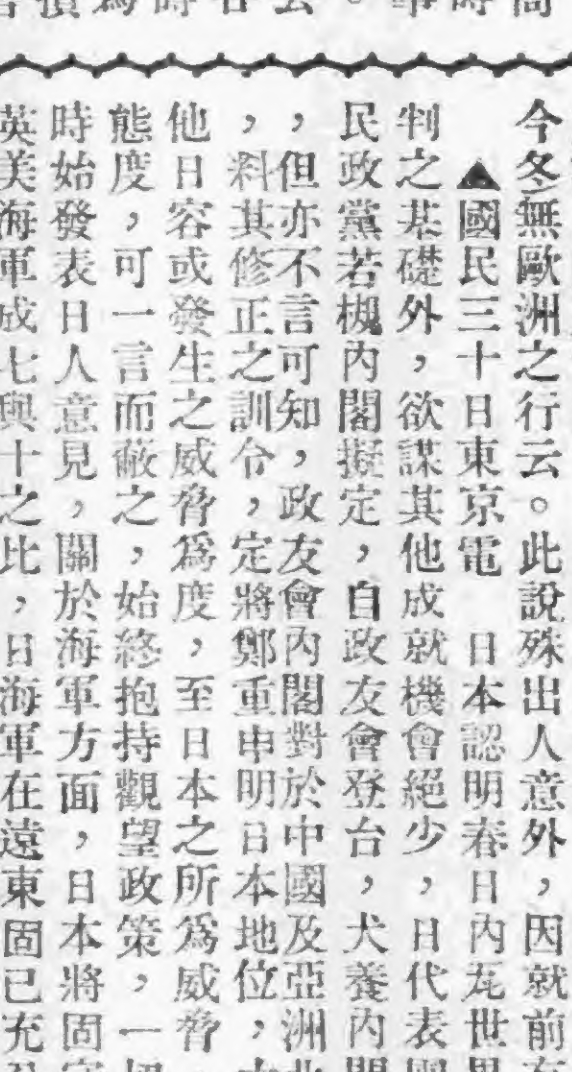 今冬無歐洲之行云。此說殊出人意外，因就前
▲國民三十日東京電　日本認明春日內瓦世界
判之基礎外，欲謀其他成就機會絕少，日代表
民政黨若槻內閣擬定，自政友會登台，犬養內閣
，但亦不言可知，政友會內閣對於中國及亞洲
，料其修正之訓令，定將鄭重申明日本地位，
他日容或發生之威脅爲度，至日本之所爲威脅
態度，可一言而蔽之，始終抱持觀望政策，一切
時始發表日人意見，關於海軍方面，日本將固
英美海軍成七與十之比，日海軍在遠東固已充